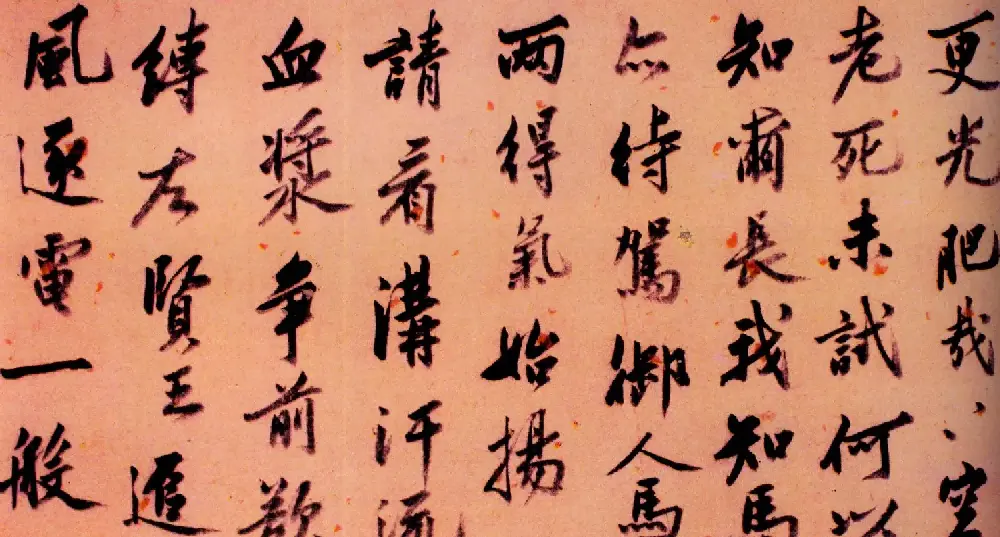 更光肥哉、空
老死未試何以
知爾長我知馬
亦待駕御人馬
兩得氣始揚
請看溝汗流
血漿爭前欲
縛左賢王追
風逐電一般